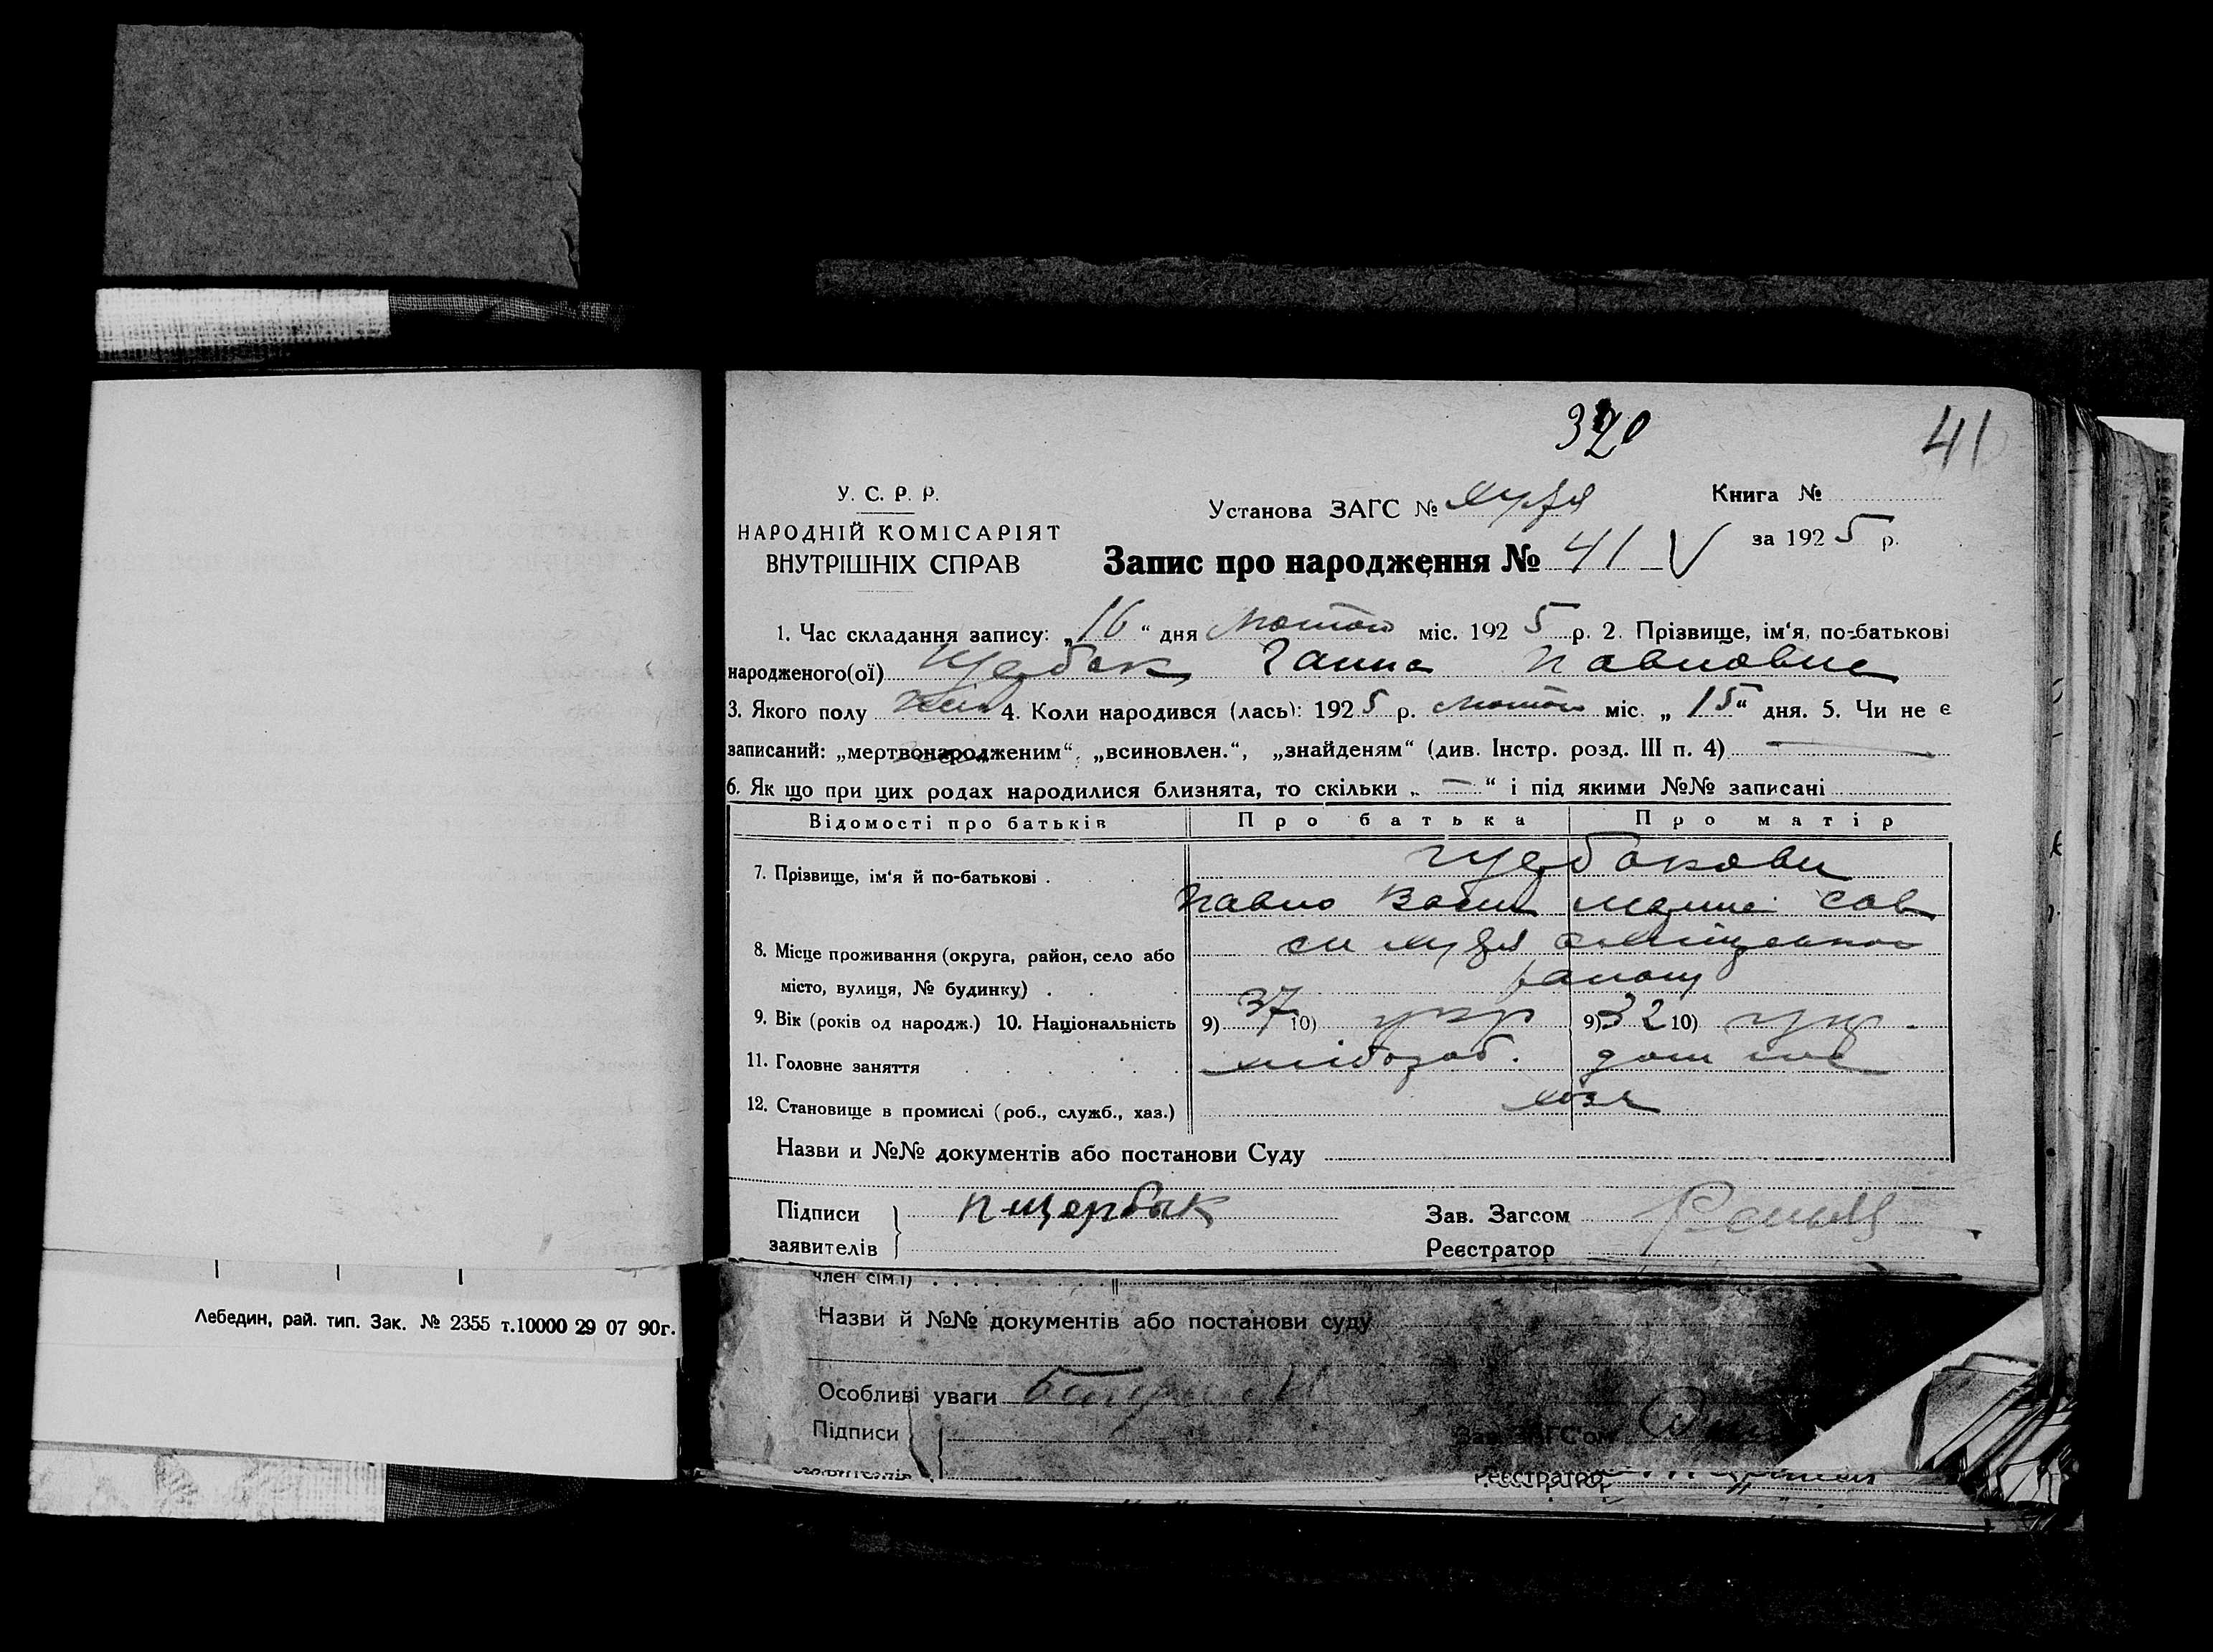 320
41
У. С. Р. Р.
НАРОДНІЙ КОМІСАРІЯТ
ВНУТРІШНІХ СПРАВ
Установа ЗАГС №
Книга №
за 1925 р.
Запис про народження № 41
1. Час складання запису: „16“ дня Лютого міс. 1925 р. 2. Прізвище, ім‘я, по-батькові
народженого(ої) Щербак Ганна Павловна
3. Якого полу жін 4. Коли народився (лась): 1925 р. Лютого міс. „15“ дня. 5. Чи не є
записаний: „мертвонародженим“, „всиновлен.“, „знайденям“ (див. Інстр. розд. III п. 4) —
6. Як що при цих родах народилися близнята, то скільки „ — “ і під якими №№ записані
Відомості про батьків Про батька Про матір
7. Прізвище, ім‘я й по-батькові . Щербакови
Павло Васил Сав
8. Місце проживання (округа, район, село або
місто, вулиця, № будинку) . району
9. Вік (років од народж.) 10. Національність 9) 37 10) укр 9) 32 10) укр.
11. Головне заняття хлібороб.
12. Становище в промислі (роб., служб., хаз.) хозя
Назви и №№ документів або постанови Суду
Підписи
заявителів
П Щербак
Зав. Загсом
Реєстратор
Лебедин, рай. тип. Зак. № 2355 т.10000 29 07 90г.
член сім.ї)
Назви й №№ документів або постанови суду
Особливі уваги
Підписи
Зав. ЗАГС'ом
заявителів
Реєстратор